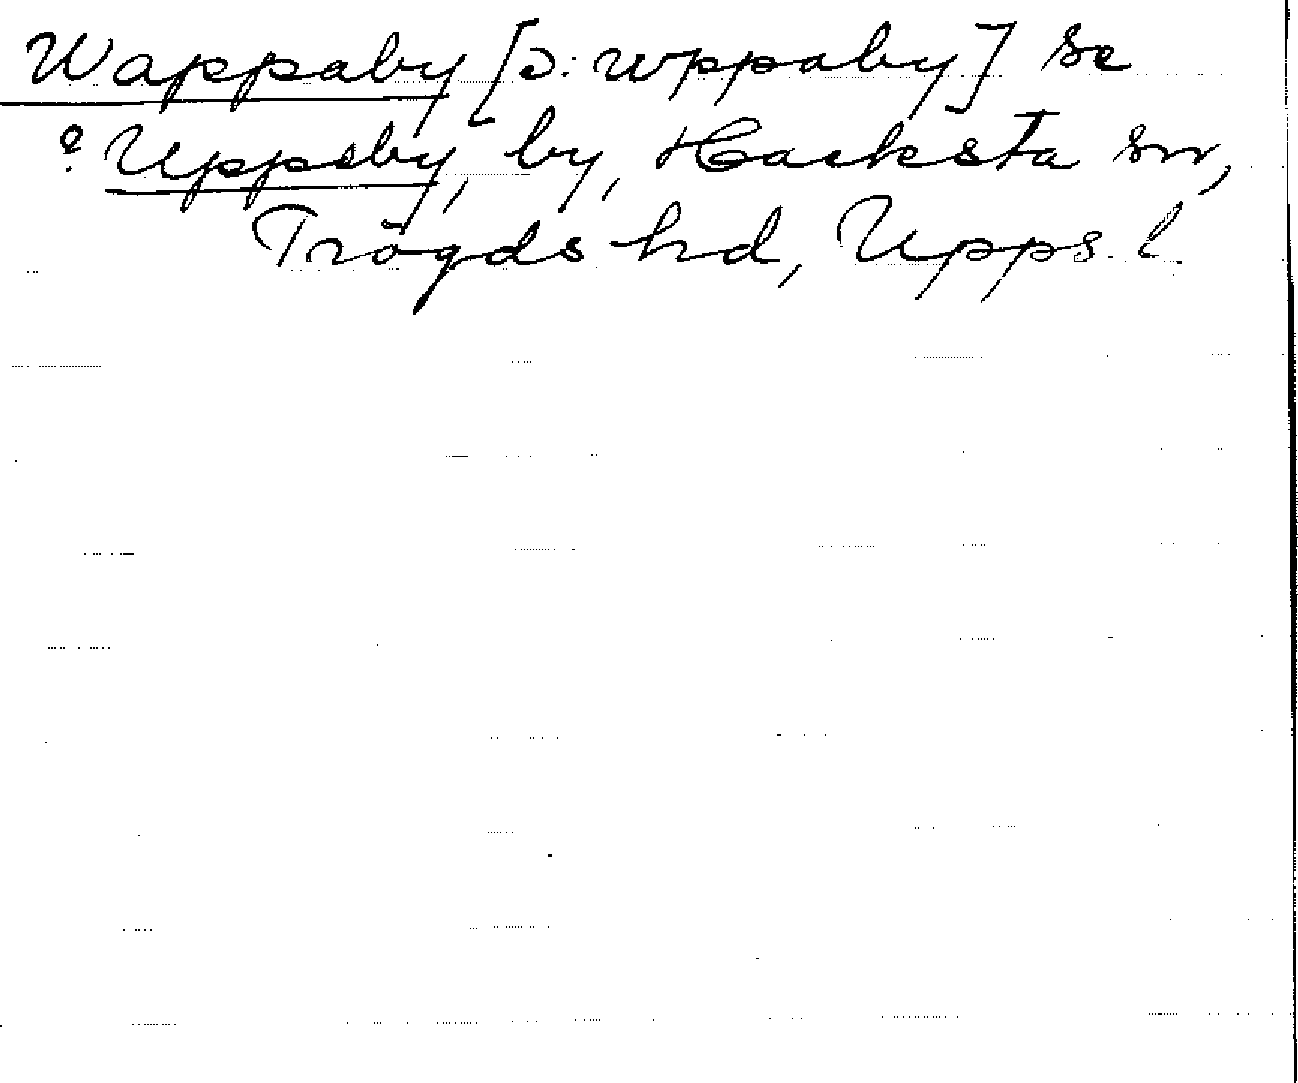 Wappaby [ɔ: wppaby] se
? Uppeby, by, Hacksta sn,
Trögds hd, Upps. l.